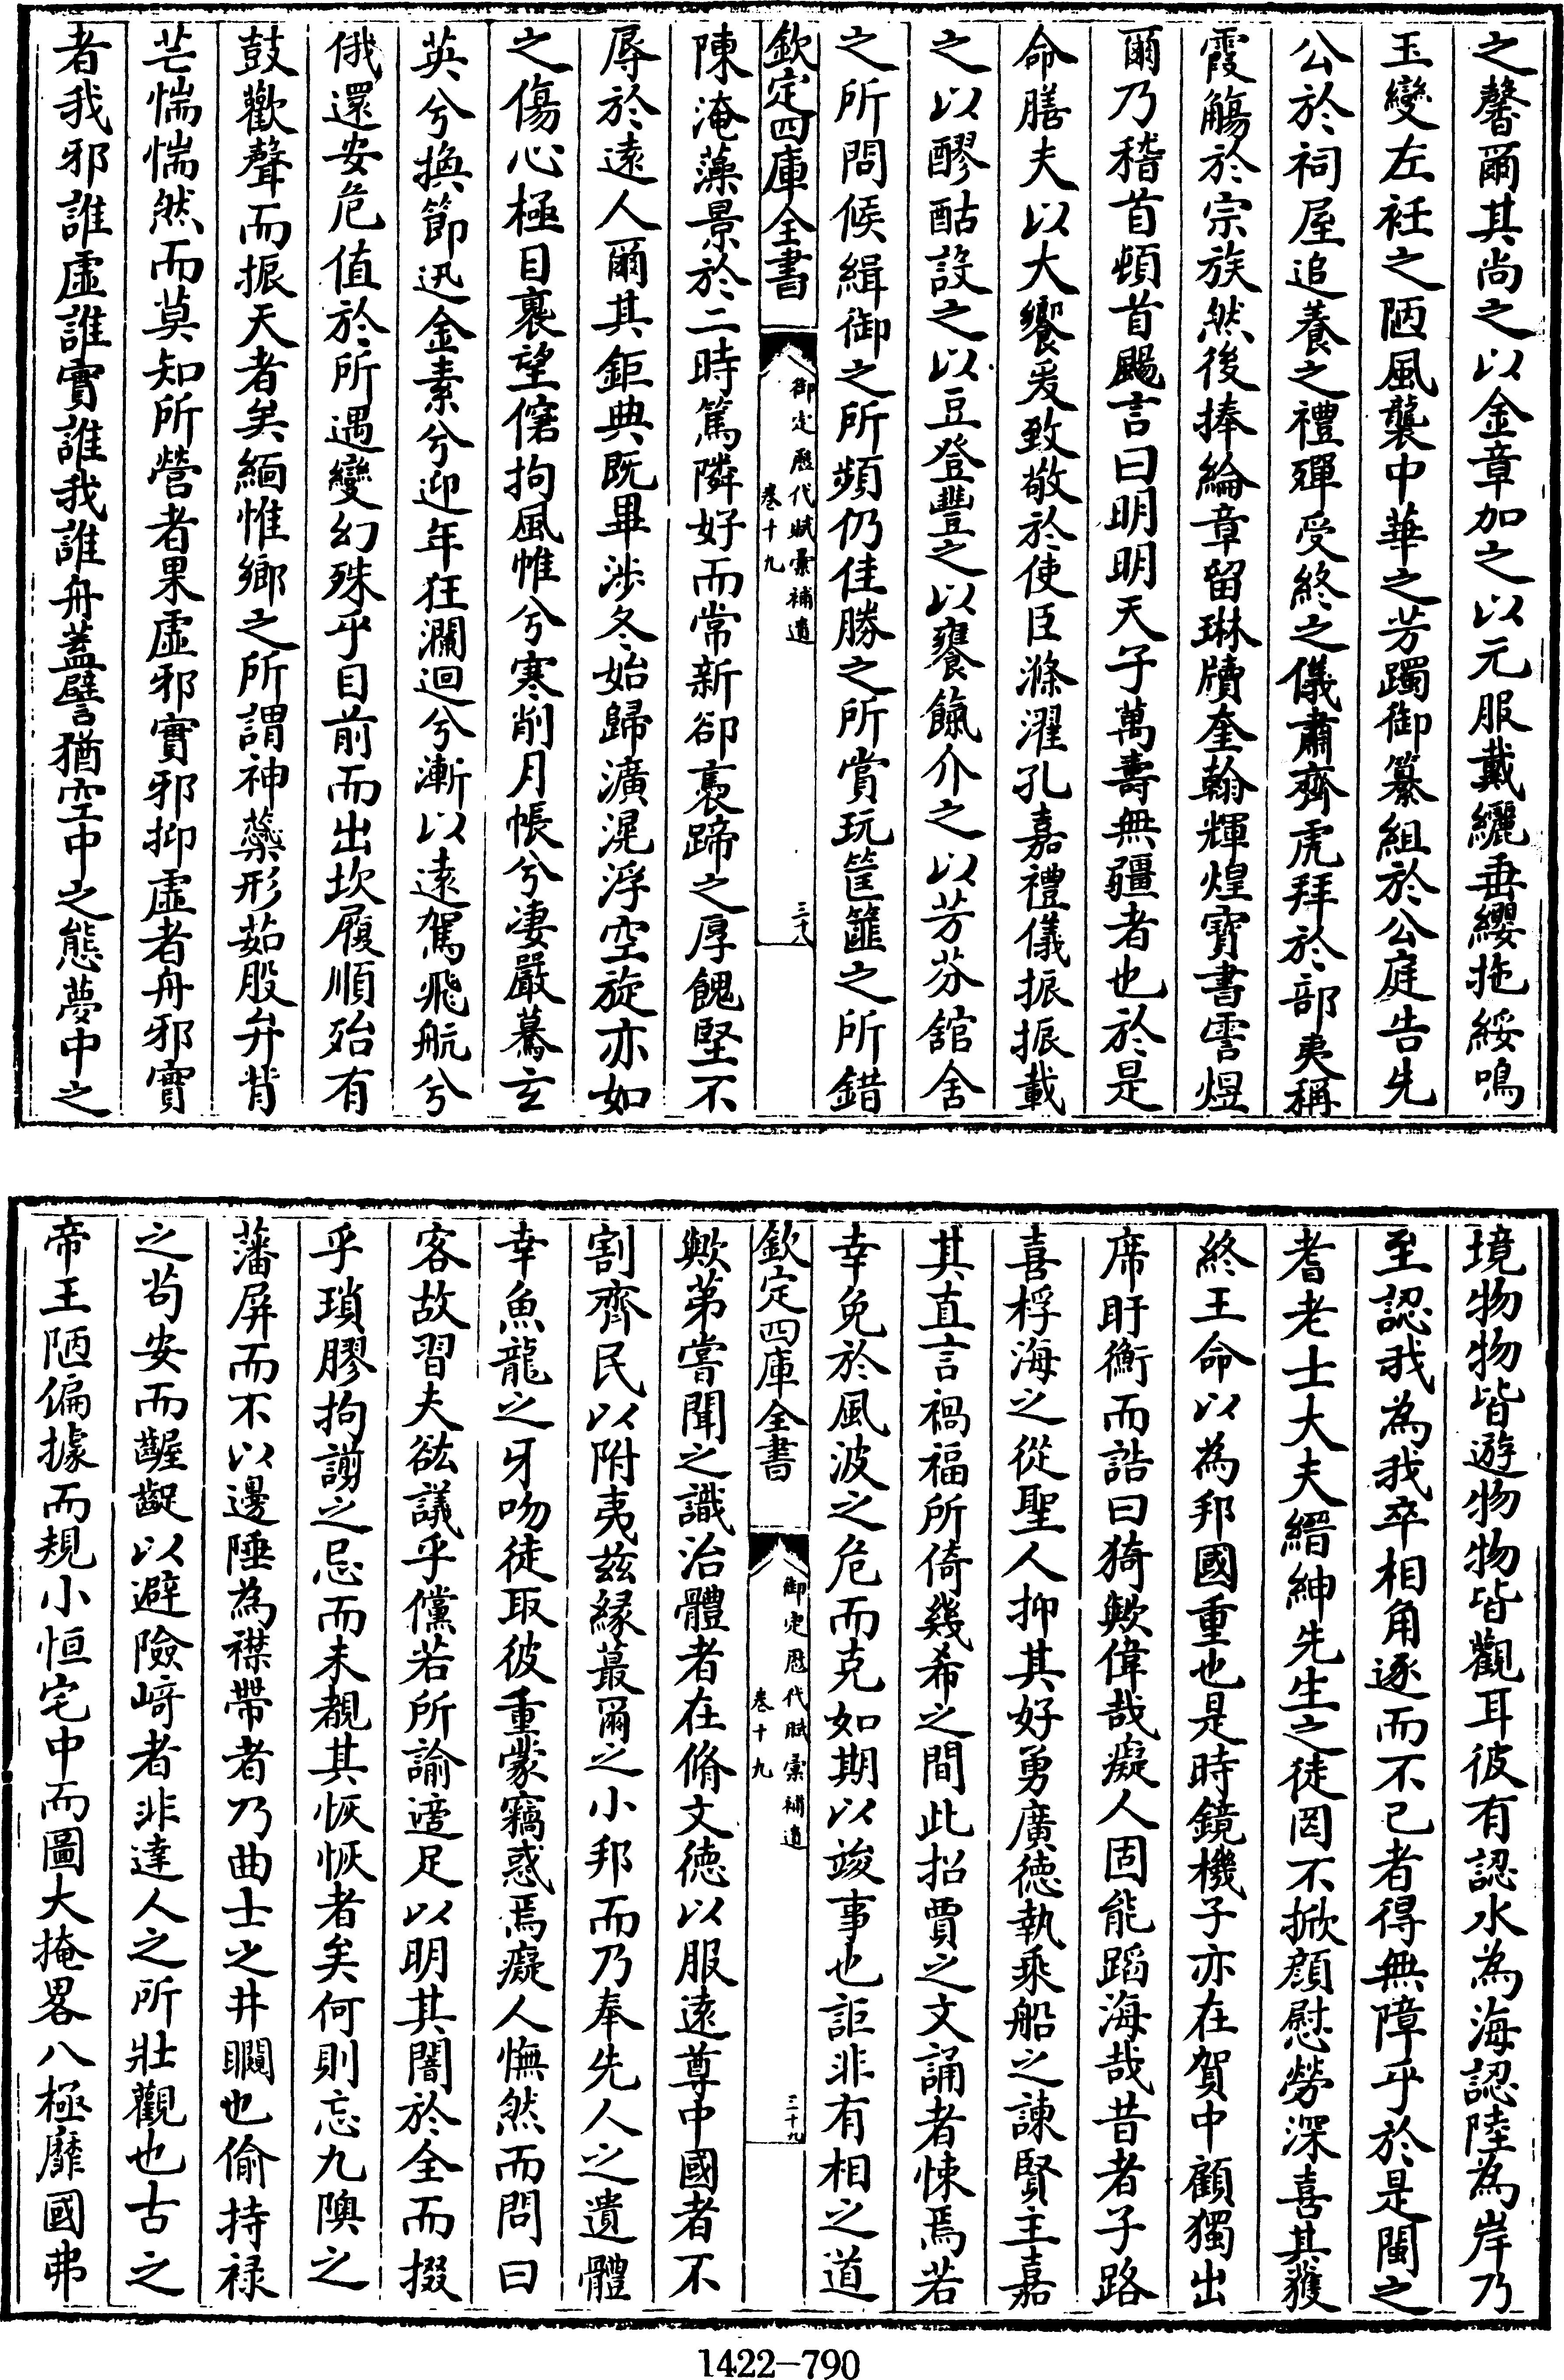 之馨爾其尚之以金章加之以元服戴纚垂纓拖綏鳴
玉變左衽之陋風襲中華之芳躅御纂組於公庭告先
公於祠屋追養之禮殫受終之儀肅齊虎拜於部夷稱
霞觴於宗族然後捧綸章留琳牘奎翰輝煌寶書霅煜
爾乃稽首頓首颺言曰明明天子萬壽無疆者也於是
命膳夫以大饗爰致敬於使臣滌濯孔嘉禮儀振振載
之以醪酤設之以豆登豐之以饔餼介之以芳芬舘舍
之所問候緝御之所頻仍佳勝之所賞玩筐篚之所錯
欽定四庫全書
御定歷代賦彙補遺
卷十九
三十八
陳淹藻景於二時篤隣好而常新卻裹蹄之厚餽堅不
辱於遠人爾其鉅典既畢涉冬始歸瀇滉浮空旋亦如
之傷心極目裹望僒拘風帷兮寒削月帳兮凄嚴驀玄
英兮換節迅金素兮迎年狂瀾迴兮漸以遠駕飛航兮
俄還安危值於所遇變幻殊乎目前而出坎履順殆有
鼓歡聲而振天者矣緬惟鄉之所謂神藥形茹股弁背
芒惴惴然而莫知所營者果虛邪實邪抑虛者舟邪實
者我邪誰虛誰實誰我誰舟蓋譬猶空中之態夢中之
境物物皆遊物物皆觀耳彼有認水為海認陸為岸乃
至認我為我卒相角逐而不已者得無障乎於是閩之
耆老士大夫縉紳先生之徒罔不掀顔慰勞深喜其獲
終王命以為邦國重也是時鏡機子亦在賀中顧獨出
席盱衡而誥曰猗歟偉哉癡人固能蹈海哉昔者子路
喜桴海之從聖人抑其好勇廣德執乘船之諫賢主嘉
其直言禍福所倚幾希之間此招賈之文誦者悚焉若
幸免於風波之危而克如期以竣事也詎非有相之道
欽定四庫全書
御定歷代賦彙補遺
卷十九
三十九
歟第嘗聞之識治體者在脩文德以服遠尊中國者不
割齊民以附夷兹緣蕞爾之小邦而乃奉先人之遺體
幸魚龍之牙吻徒取彼重蒙竊惑焉癡人憮然而問曰
客故習夫紘議乎儻若所諭適足以明其闇於全而掇
乎瑣膠拘謭之忌而未覩其恢恢者矣何則忘九隩之
藩屏而不以邊陲為襟帶者乃曲士之井瞷也偷持禄
之苟安而齷齪以避險﨑者非達人之所壯觀也古之
帝王陋偏據而規小恒宅中而圖大掩畧八極靡國弗
1422—790